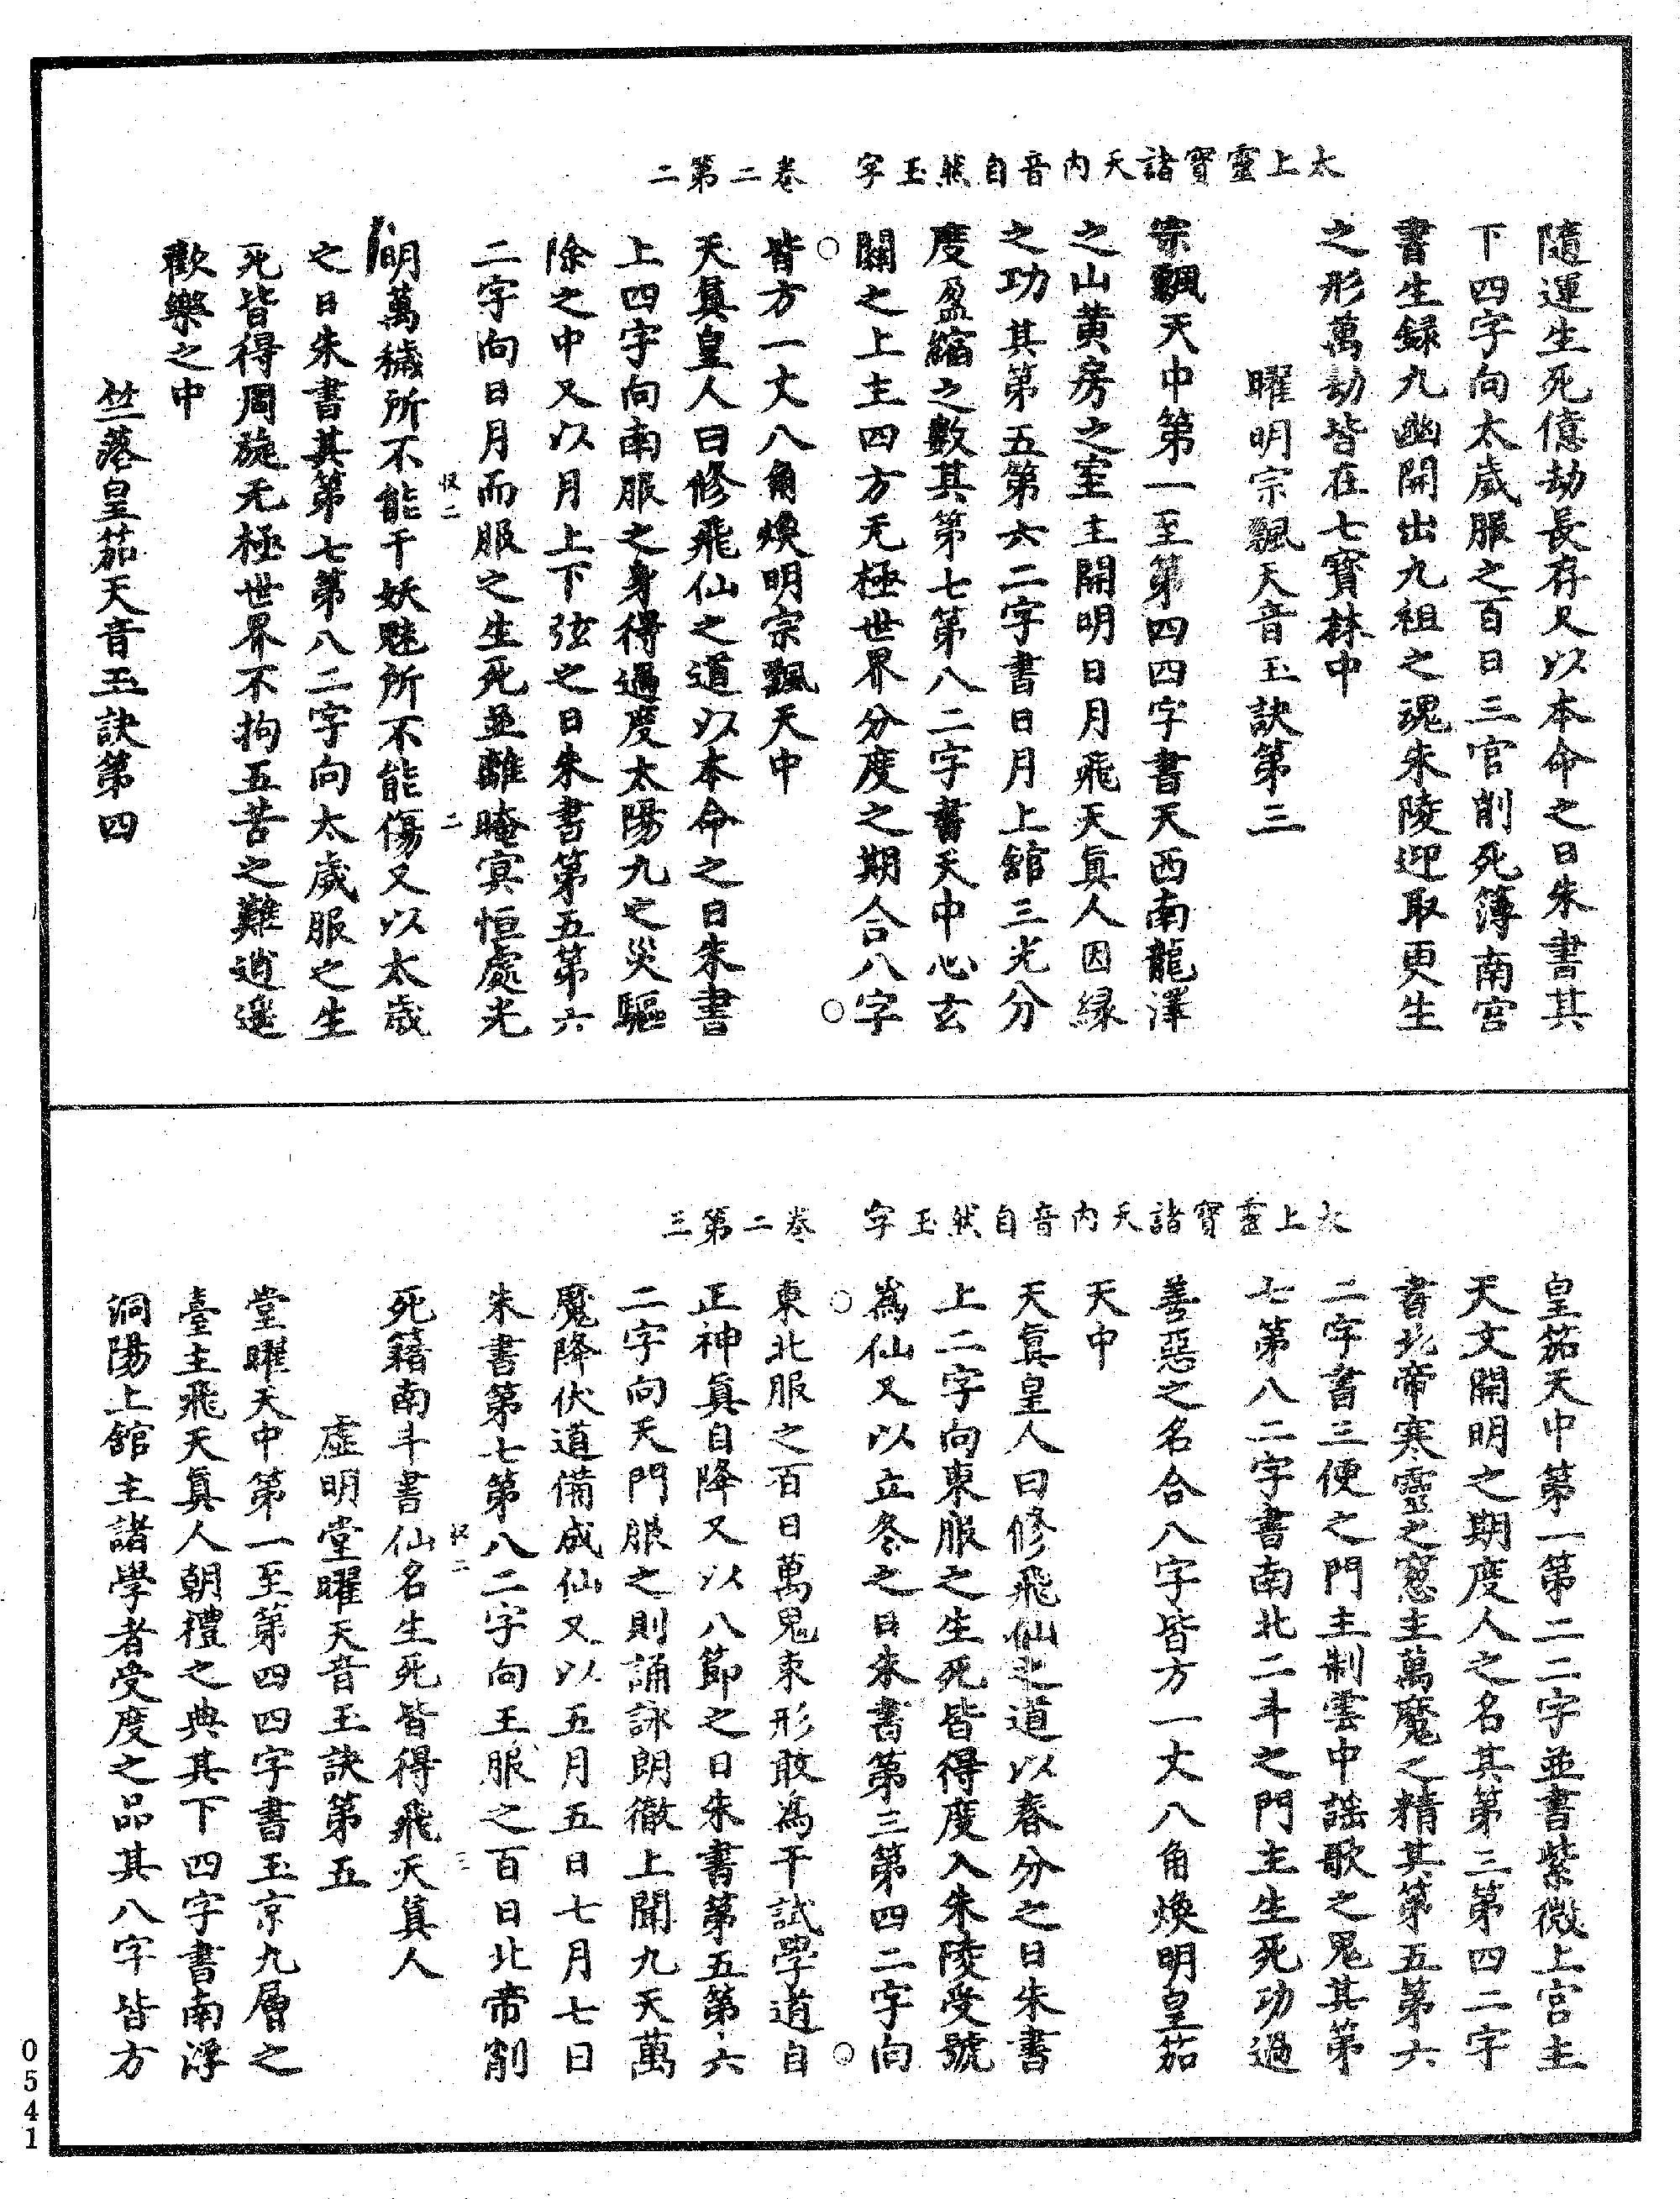 太上靈寶諸天內音自然玉字　卷二第二
隨運生死億劫長存又以本命之日朱書其
下四字向太歲服之百日三官削死簿南宮
書生録九幽開出九祖之魂朱陵迎取更生
之形萬劫皆在七寶林中
曜明宗飄天音玉訣第三
宗飄天中第一至第四四字書天西南龍澤
之山黃房之室主開明日月飛天真人因緣
之功其第五第六二字書日月上館三光分
度盈縮之數其第七第八二字書天中心玄
關之上主四方无極世界分度之期合八字
皆方一丈八角煥明宗飄天中
天真皇人曰修飛仙之道以本命之日朱書
上四字向南服之身得過度太陽九之災驅
除之中又以月上下弦之日朱書第五第六
二字向日月而服之生死並離晻冥恒處光
明萬穢所不能干妖魅所不能傷又以太歲
之日朱書其第七第八二字向太歲服之生
死皆得周旋无極世界不拘五苦之難逍遙
歡樂之中
竺落皇笳天音玉訣第四
二
太上靈寶諸天內音自然玉字　卷二第三
皇笳天中第一第二二字並書紫微上宮主
天文開明之期度人之名其第三第四二字
書北帝寒靈之窻主萬魔之精其第五第六
二字書三便之門主制雲中謡歌之鬼其第
七第八二字書南北二斗之門主生死功過
善惡之名合八字皆方一丈八角煥明皇笳
天中
天真皇人曰修飛仙之道以春分之日朱書
上二字向東服之生死皆得度入朱陵受號
為仙又以立冬之日朱書第三第四二字向
東北服之百日萬鬼束形敢為干試學道自
正神真自降又以八節之日朱書第五第六
二字向天門服之則誦詠朗徹上聞九天萬
魔降伏道備成仙又以五月五日七月七日
朱書第七第八二字向王服之百日北帝削
死籍南斗書仙名生死皆得飛天真人
虛明堂曜天音玉訣第五
堂曜天中第一至第四四字書玉京九層之
臺主飛天真人朝禮之典其下四字書南浮
洞陽上館主諸學者受度之品其八字皆方
三
0541